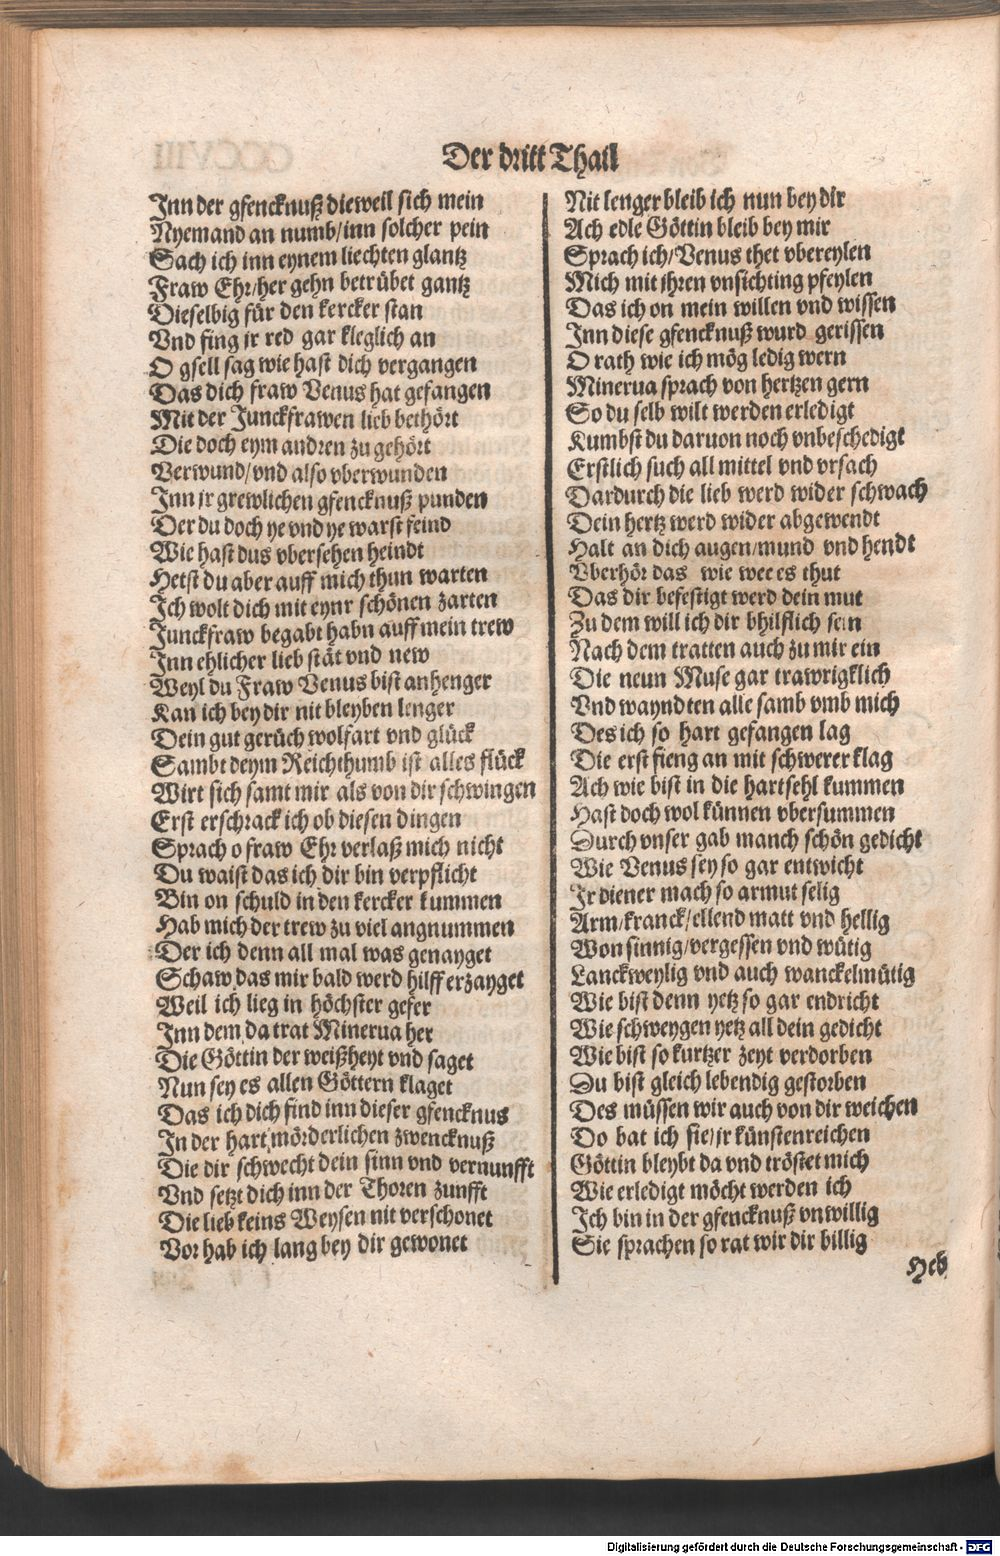 Der dritt Thail
Inn der gfencknuß dieweil sich mein
Nyemand an numb/inn solcher pein
Sach ich inn eynem liechten glantz
Fraw Ehr/her gehn betrübet gantz
Dieselbig für den kercker stan
Vnd fing jr red gar kleglich an
O gsell sag wie hast dich vergangen
Das dich fraw Venus hat gefangen
Mit der Junckfrawen lieb bethört
Die doch eym andren zu gehört
Verwund/vnd also vberwunden
Inn jr grewlichen gfencknuß punden
Der du doch ye vnd ye warst feind
Wie hast dus vbersehen heindt
Hetst du aber auff mich thun warten
Ich wolt dich mit eynr schönen zarten
Junckfraw begabt habn auff mein trew
Inn ehlicher lieb stät vnd new
Weyl du Fraw Venus bist anhenger
Kan ich bey dir nit bleyben lenger
Dein gut gerüch wolfart vnd glück
Sambt deym Reichthumb ist alles flück
Wirt sich samt mir als von dir schwingen
Erst erschrack ich ob diesen dingen
Sprach o fraw Ehr verlaß mich nicht
Du waist das ich dir bin verpflicht
Bin on schuld in den kercker kummen
Hab mich der trew zu viel angnummen
Der ich denn all mal was genayget
Schaw das mir bald werd hilff erzayget
Weil ich lieg in höchster gefer
Inn dem da trat Minerua her
Die Göttin der weißheyt vnd saget
Nun sey es allen Göttern klaget
Das ich dich find inn dieser gfencknus
In der hart mörderlichen zwencknuß
Die dir schwecht dein sinn vnd vernunfft
Vnd setzt dich inn der Thoren zunfft
Die lieb keins Weysen nit verschonet
Vor hab ich lang bey dir gewonet
Nit lenger bleib ich nun bey dir
Ach edle Göttin bleib bey mir
Sprach ich/Venus thet vbereylen
Mich mit ihren vnsichting pfeylen
Das ich on mein willen vnd wissen
Inn diese gfencknuß wurd gerissen
O rath wie ich mög ledig wern
Minerua sprach von hertzen gern
So du selb wilt werden erledigt
Kumbst du daruon noch vnbeschedigt
Erstlich such all mittel vnd vrsach
Dardurch die lieb werd wider schwach
Dein hertz werd wider abgewendt
Halt an dich augen/mund vnd hendt
Vberhör das wie wee es thut
Das dir befestigt werd dein mut
Zu dem will ich dir bhilflich sein
Nach dem tratten auch zu mir ein
Die neun Muse gar trawrigklich
Vnd wayndten alle samb vmb mich
Des ich so hart gefangen lag
Die erst fieng an mit schwerer klag
Ach wie bist in die hartsehl kummen
Hast doch wol künnen vbersummen
Durch vnser gab manch schön gedicht
Wie Venus sey so gar entwicht
Jr diener mach so armut selig
Arm/kranck/ellend matt vnd hellig
Wonsinnig/vergessen vnd wütig
Lanckweylig vnd auch wanckelmütig
Wie bist denn yetz so gar endricht
Wie schweygen yetz all dein gedicht
Wie bist so kurtzer zeyt verdorben
Du bist gleich lebendig gestorben
Des müssen wir auch von dir weichen
Do bat ich sie/jr künstenreichen
Göttin bleybt da vnd tröstet mich
Wie erledigt möcht werden ich
Ich bin in der gfencknuß vnwillig
Sie sprachen so rat wir dir billig
Heb
Digitalisierung gefördert durch die Deutsche Forschungsgemeinschaft - DFG